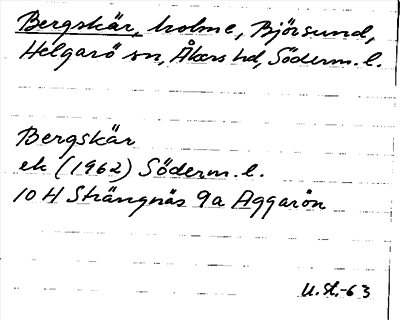 Bergskär, holme, Björsund,
Helgarö sn, Åkers hd, Söderm. l.
Bergskär
ek (1962) Söderm. l.
10 H Strängnäs 9a Aggarön
U.St.-63